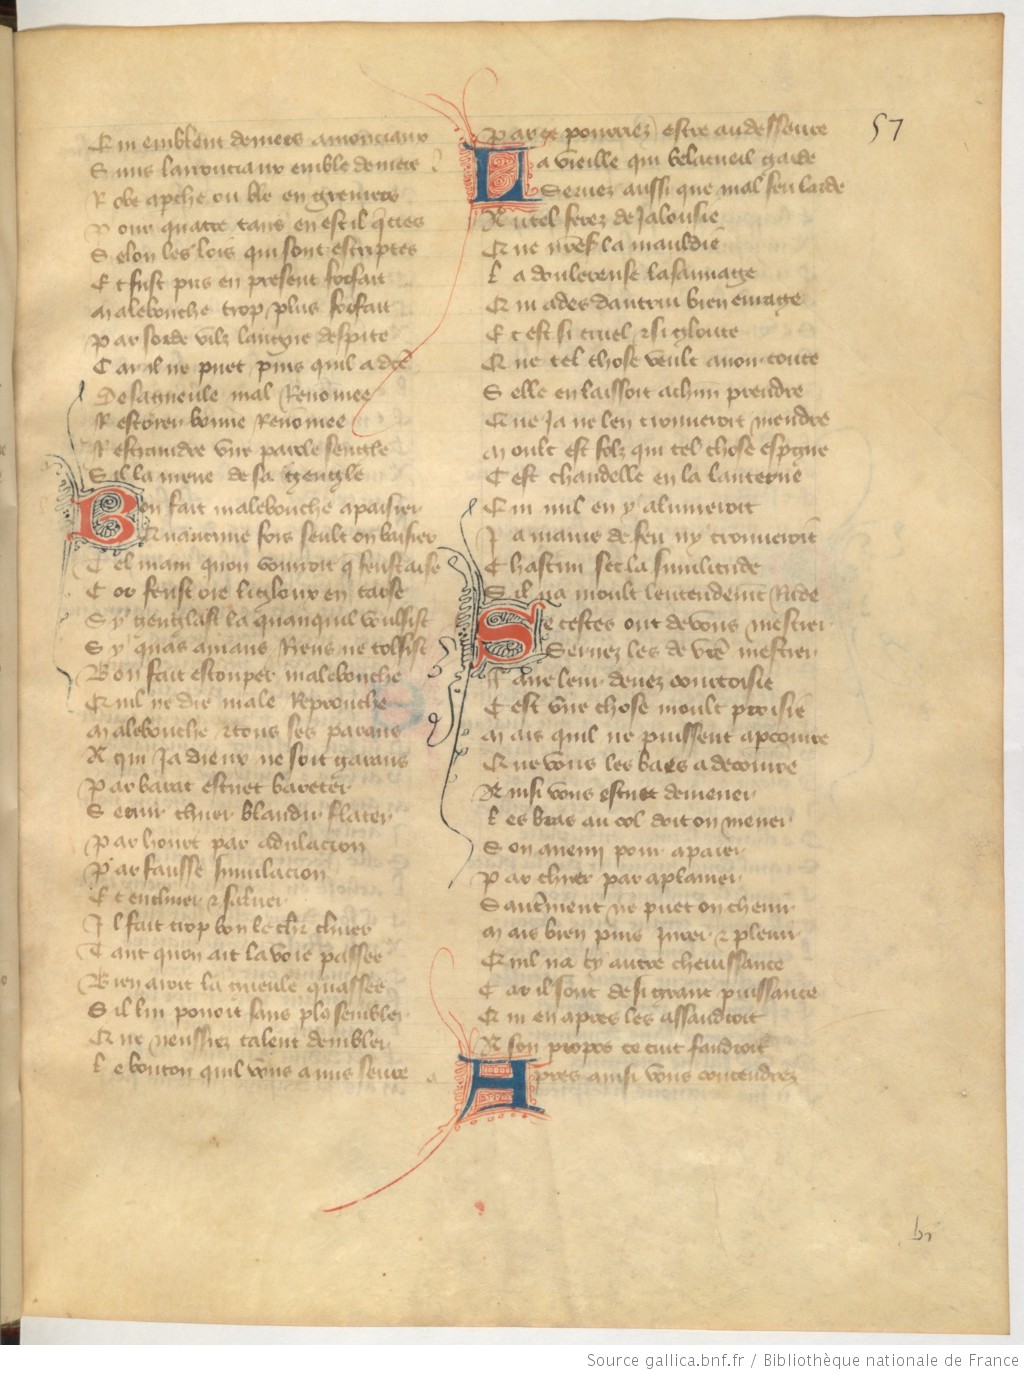 57
Qui emblent deniers a monciaux
S uns larronciaux emble deniers
R obe a perche ou ble en greniers
P our quatre tans en est il q̄ctes
S elon les lois qui sont escriptes
E t fust pris en present forfait
M alebouche trop plus forfait
P ar sorde vilz langue despite
C ar il ne puet puis quil a dc̄e
D e sa gueule mal Renōmee
R estorer bonne Renōmee
R estraindre vne parole seulle
S il la meue de sa gengle
B on fait malebouche apaisier
Q uaucune fois seult on baisier
T el main quon vourroit q̄ feust arse
C or feust ore li glouz en tarse
S y genglast la quanquil voulsist
S y quas amans Riens ne tolsist
B on fait estouper malebouche
Q uil ne die male Reprouche
M alebouche et tous ses parans
A qui Ja dieux ne soit garans
P ar barat estuet bareter
S eruir chuer blandir flater
P ar hourt par adulacion
P ar fausse simulacion
E t encliner et saluer
I l fait trop bon le chn̄ chuer
T ant quon ait la voie passee
B ien auroit la gueule quassee
S il lui pouoit sans plꝰ sembler
Q ue neussiez talent dembler
L e bouton quil vo9 a mis seure
P ar ce pourriez estre au desseure
L a vieille qui belacueil garde
S eruez aussi que mal feu larde
A utel ferez de Jalousie
Q ue nr̄e sr̄ la mauldie
L a doulereuse la sauuage
Q ui ades dautrui bien enrage
E t est si cruel et si gloute
Q ue tel chose veult auoir toute
S elle en laissoit a chūn prendre
Q ue Ja ne len trouueroit mendre
M oult est folz qui tel chose esp̄gne
C est chandelle en la lanterne
Q ui mil en y alumeroit
J a mains de feu ny trouueroit
C hascun scet la similitude
S il na moult lentendem̄t Rude
S e cestes ont de vous mestier
S eruez les de vr̄e mestier
F aire leur deuez courtoisie
C est vne chose moult proisie
M ais quil ne puissent apcoiure
Q ue vous les baes a decoiure
A insi vous estuet demener
L es bras au col doit on mener
S on anemi pour apaier
P ar chuer par aplanier
S autr̄ment ne puet on cheuir
M ais bien puis Jurer et pleuir
Q uil na cy autre cheuissance
C ar il sont de si grant puissance
Q ui en apres les assaudroit
A son propos ce cuit faudroit
A pres ainsi vous contendrez
Source gallica.bnf.fr / Bibliothèque nationale de France